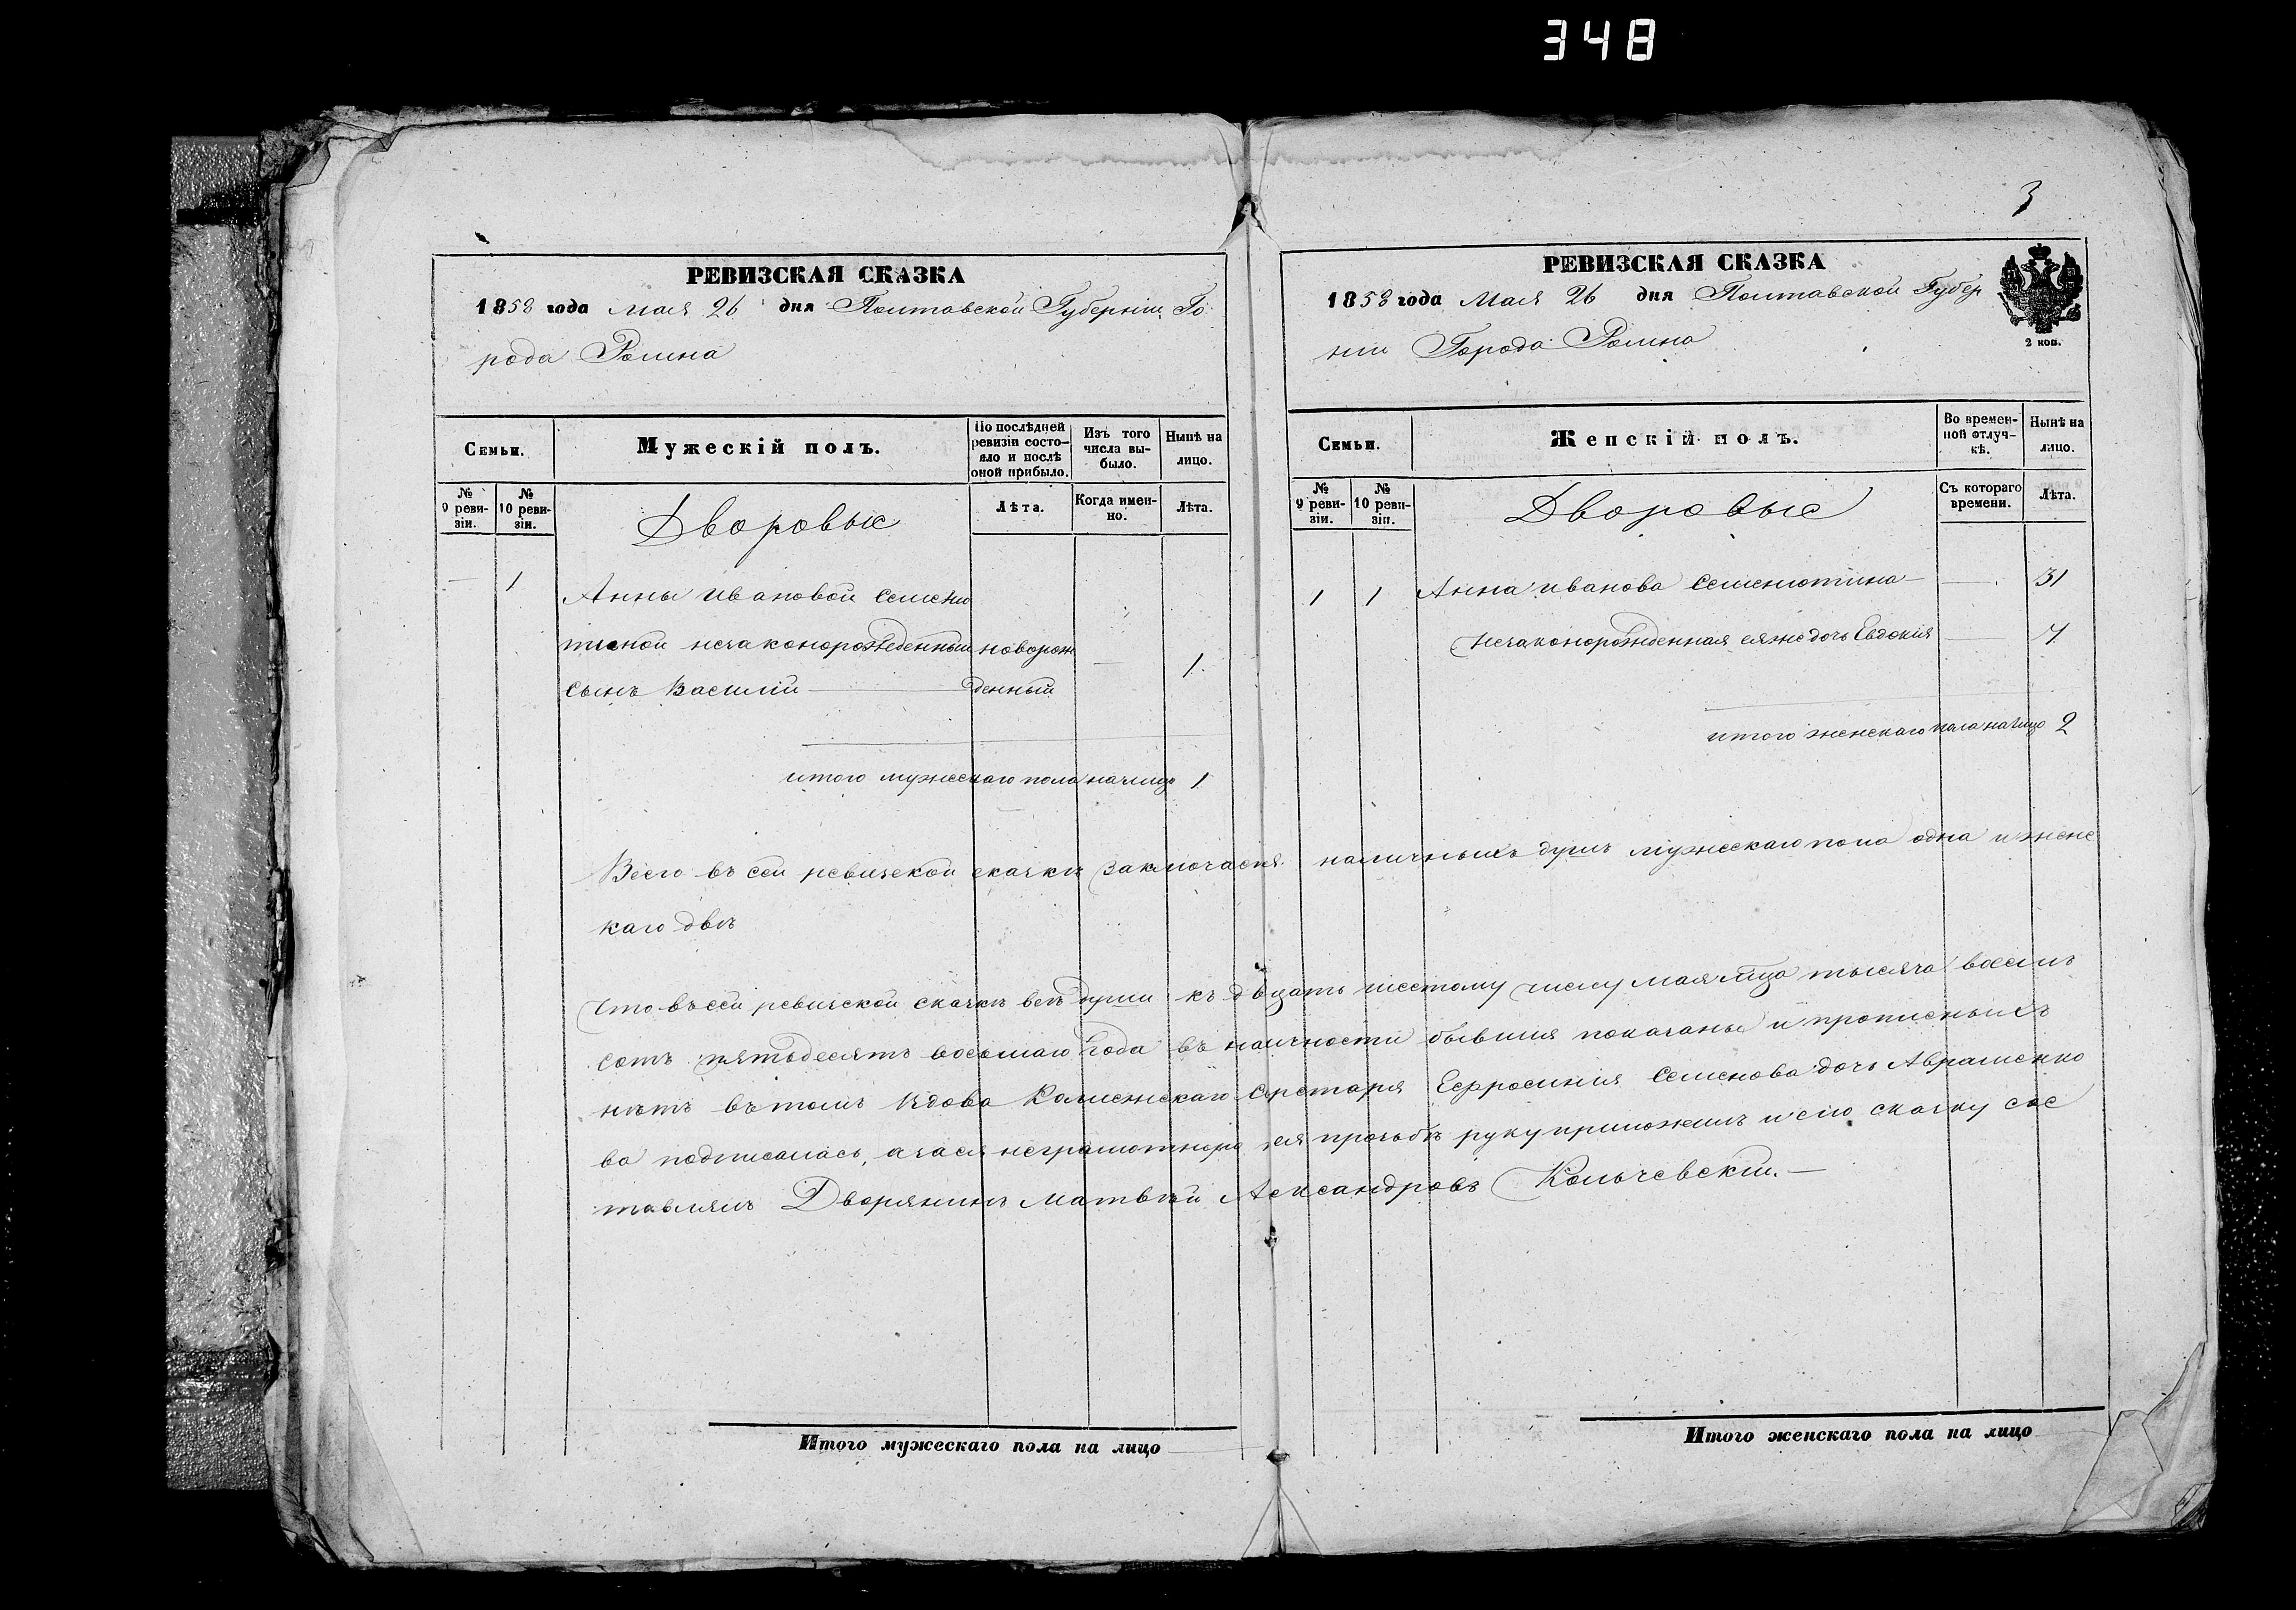 348
3
РЕВИЗСКАЯ СКАЗКА
1858 года мая 26 дня Полтавской Губерніи Го
рода Ромна
Семьи.
Мужескій полъ.
По послѣдней ревизіи состо-яло и послѣ оной прибыло.
Изъ того числа вы-было.
Нынѣ на лицо.
№ 9 реви-зіи.
№ 10 реви-зіи.
Дворовые
Лѣта.
Когда имен-но.
Лѣта.
— 1 Анны Ивановой Семеню
тиной незаконорожденный новорож — 1
сынъ Василій — денный
итого мужескаго пола налицо 1
РЕВИЗСКАЯ СКАЗКА
1858 года Мая 26 дня Полтавской Губер
ніи Города Ромна
2 коп.
Семьи.
Женскій полъ.
Во времен-ной отлуч-кѣ.
Нынѣ на лицо.
№ 9 реви-зіи.
№ 10 реви-зіи.
Дворовые
Съ котораго времени.
Лѣта.
1 1 Анна иванова Семенютина — 31
незаконорожденная еяже дочь Евдокія —
итого женскаго пола налицо 2
Всего въ сей ревизской сказкѣ заключается наличныхъ душъ мужескаго пола одна и женс
каго двѣ
Что въ сей ревизской сказкѣ всѣ души къ двцать шестому числу Мая мца тысяча восемь
сотъ пятьдесятъ восьмаго года въ наличности бывшия показаны и прописныхъ
нѣтъ въ томъ Вдова Колежскаго Секретаря Ефросиния Семенова дочь Авраменко
ва подписалась, а за ея неграмотную ея прозьбѣ руку приложилъ и сію сказку сос
тавлялъ Дворянинъ Матвѣй Александровъ Кольчевскій. —
Итого мужескаго пола на лицо
Итого женскаго пола на лицо